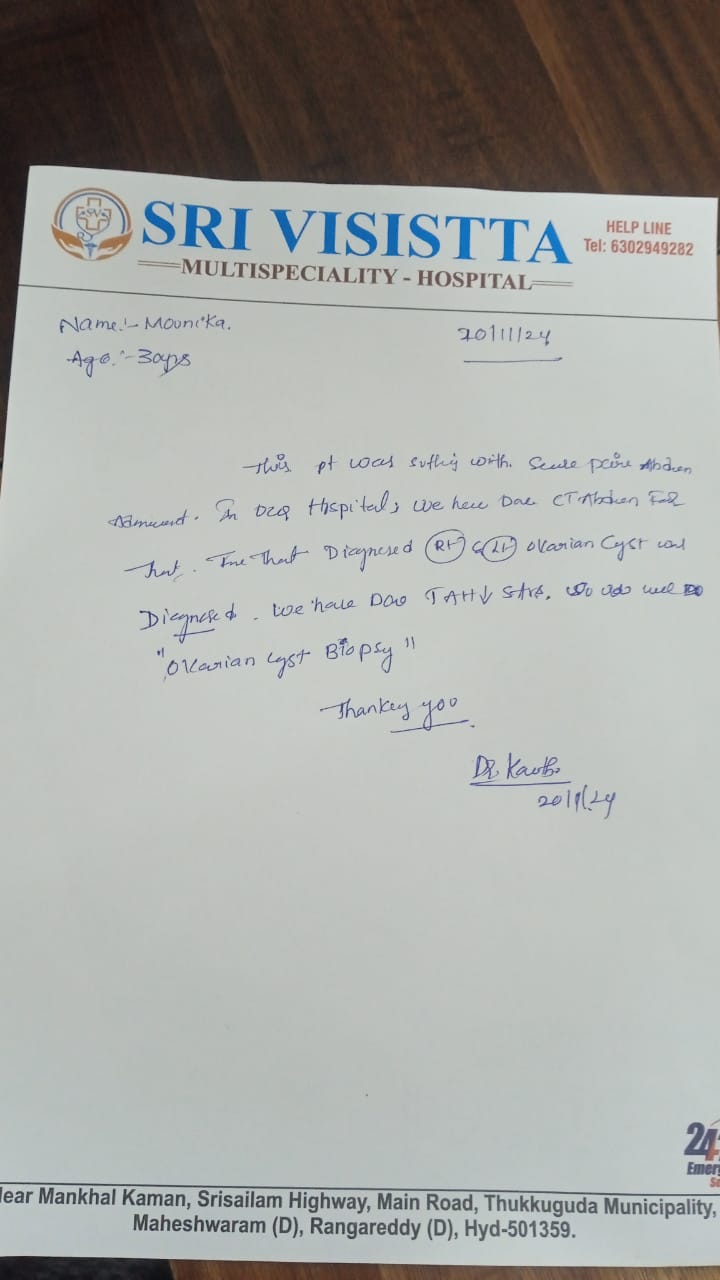 SRI VISISTTA
MULTISPECIALITY - HOSPITAL
HELP LINE
Tel: 6302949282
Name:- Mounika.
20/11/24
Age:- 30yrs
This pt was with. Abdmen
In Hospital, we have CT Abdmen For
That. That Diagnosed RT & LT Ovarian Cyst
Diagnosed. We have TAH
"Ovarian Cyst Biopsy"
Thankey you
Dr.
20/11/24
24
Emer
Near Mankhal Kaman, Srisailam Highway, Main Road, Thukkuguda Municipality,
Maheshwaram (D), Rangareddy (D), Hyd-501359.